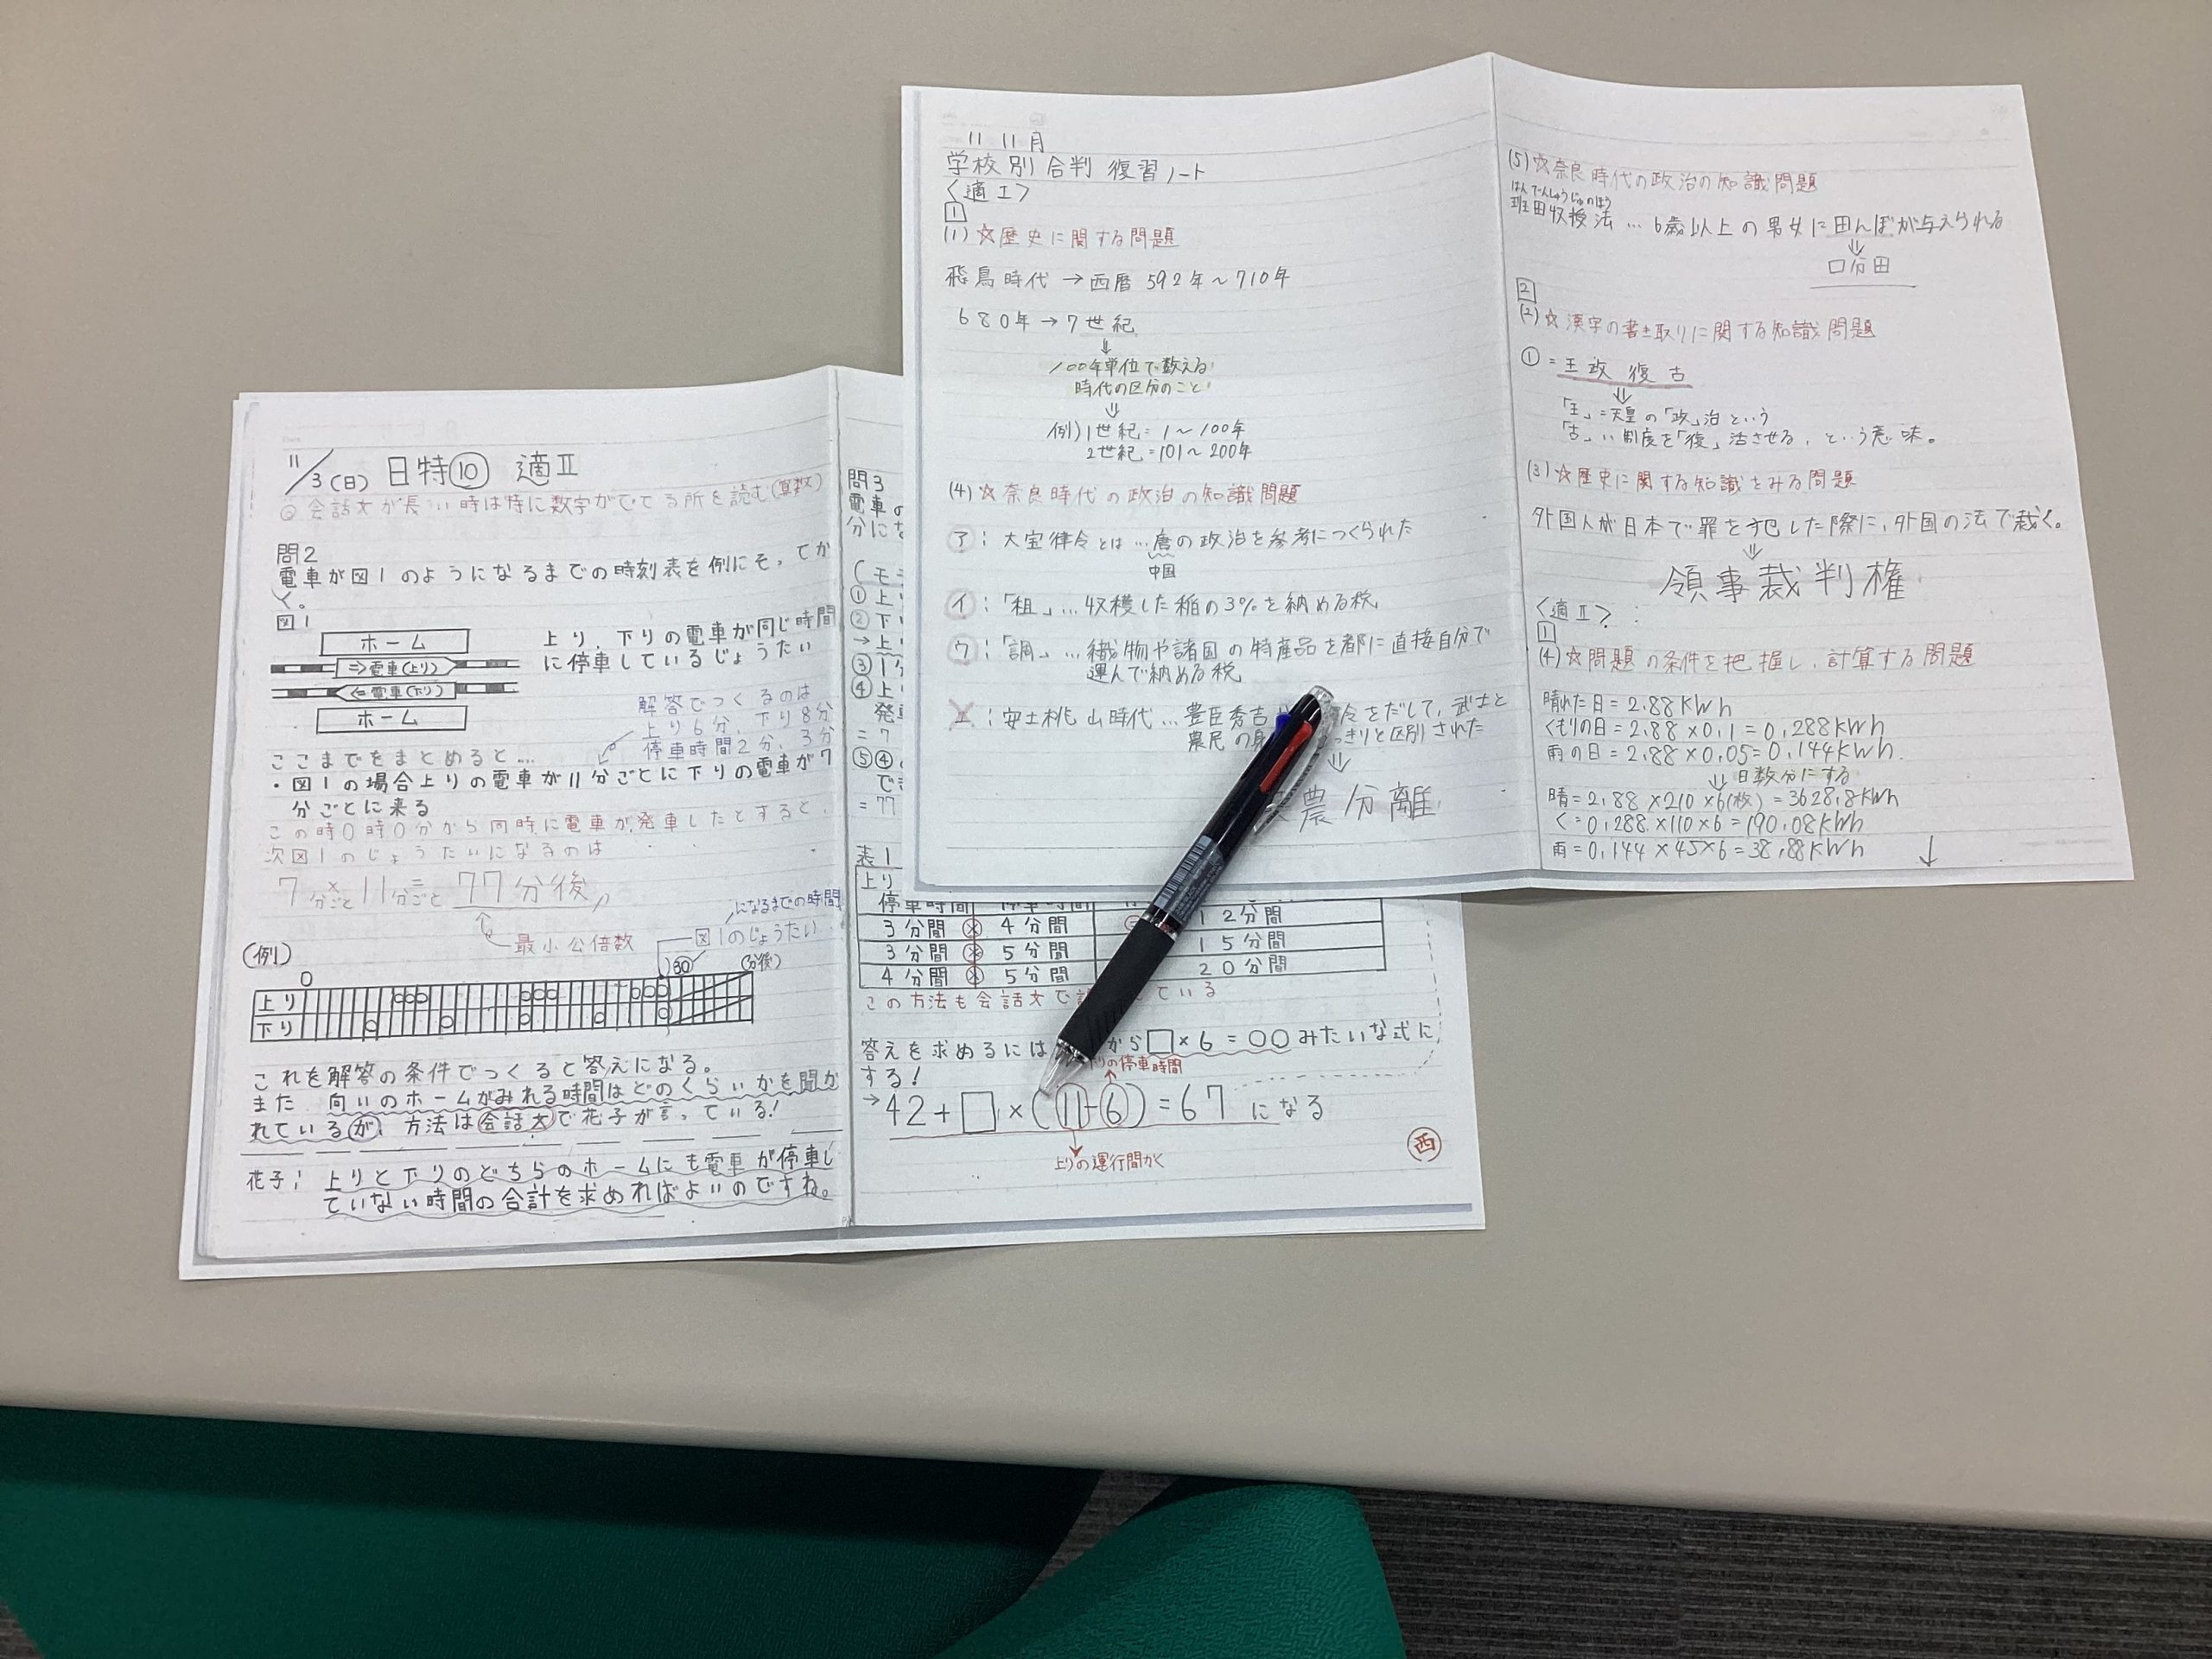 11/3(日) 日特⑩ 適Ⅱ
◎会話文が長い時は特に数字がでてる所を読む(算数)
問2
電車が図1のようになるまでの時刻表を例にそってか
く。
図1
ホーム
⇒電車(上り)
⇐電車(下り)
ホーム
上り、下りの電車が同じ時間
に停車しているじょうたい
解答でつくるのは
上り6分、下り8分
停車時間2分、3分
ここまでをまとめると…
・図1の場合上りの電車が11分ごとに下りの電車が7
分ごとに来る
この時0時0分から同時に電車が発車したとすると、
次図1のじょうたいになるのは
7分ごと×11分ごと=77分後
最小公倍数
になるまでの時間
図1のじょうたい
(例)
0 30 (分後)
上り
下り
これを解答の条件でつくると答えになる。
また 向いのホームがみれる時間はどのくらいかを聞か
れているが、方法は会話文で花子が言っている!
花子; 上りと下りのどちらのホームにも電車が停車し
ていない時間の合計を求めればよいのですね。
問3
電車の
分にな
(モ
①上り
②下り
→上り
③1分
④上り
発車
=7
⑤④
でき
=77
表1
上り
停車時間 停車時間
3分間 × 4分間 = 12分間
3分間 × 5分間 15分間
4分間 × 5分間 20分間
この方法も会話文で
ている
答えを求めるには
から□×6=〇〇みたいな式に
する!
りの停車時間
→42+□×(11-6)=67 になる
上りの運行間かく
西
11 11月
学校別合判 復習ノート
〈適Ⅰ〉
1
(1)☆歴史に関する問題
飛鳥時代→西暦592年~710年
680年→7世紀
⇓
100年単位で数える
時代の区分のこと
⇓
例)1世紀=1~100年
2世紀=101~200年
(4)☆奈良時代の政治の知識問題
ア:大宝律令とは…唐の政治を参考につくられた
中国
イ:「租」…収穫した稲の3%を納める税
ウ:「調」…織物や諸国の特産品を都に直接自分で
運んで納める税
エ:安土桃山時代…豊臣秀吉
令をだして、武士と
農民の身
っきりと区別された
⇓
農分離
(5)☆奈良時代の政治の知識問題
はんでんしゅうじゅのほう
班田収授法…6歳以上の男女に田んぼが与えられる
⇓
口分田
2
(2)☆漢字の書き取りに関する知識問題
①=王政復古
⇓
「王」=天皇の「政」治という
「古」い制度を「復」活させる、という意味。
(3)☆歴史に関する知識をみる問題
外国人が日本で罪を犯した際に、外国の法で裁く。
⇓
領事裁判権
〈適Ⅱ〉
1
(4)☆問題の条件を把握し、計算する問題
晴れた日=2.88KWh
くもりの日=2.88×0.1=0.288KWh
雨の日=2.88×0.05=0.144KWh
⇓日数分にする
晴=2.88×210×6(枚)=3628.8KWh
く=0.288×110×6=190.08KWh
雨=0.144×45×6=38.88KWh
↓